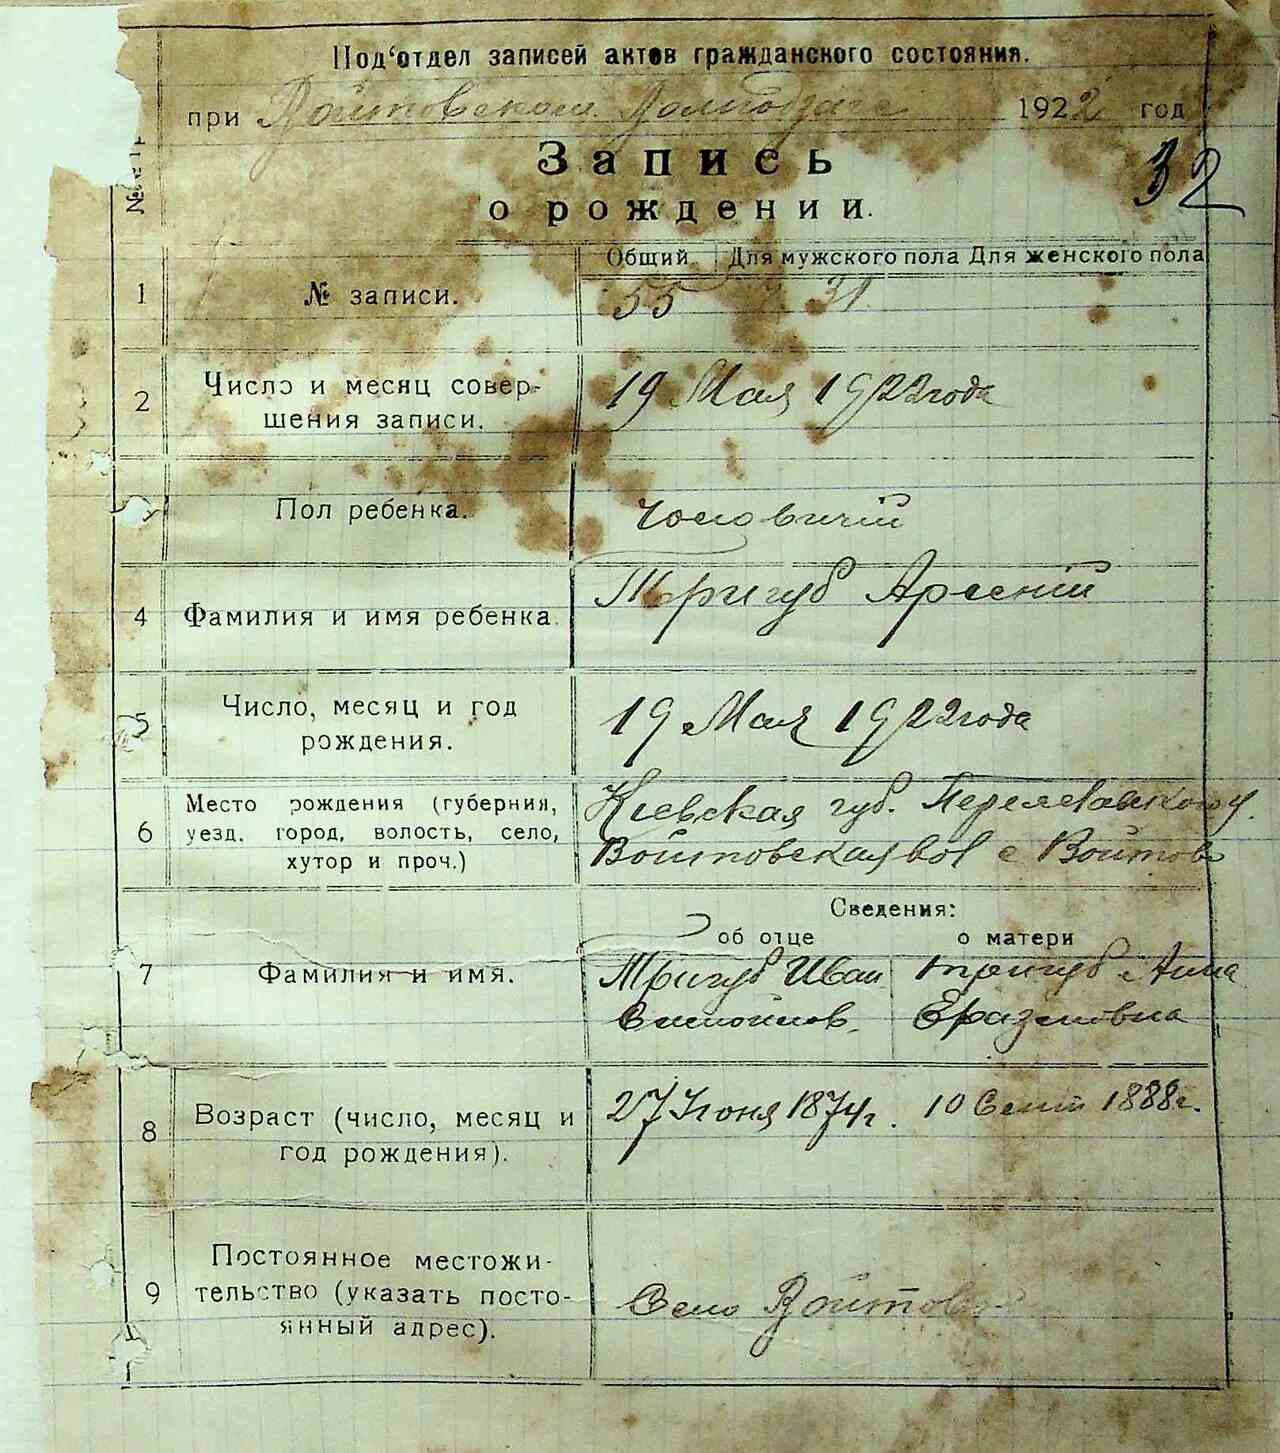 Под‘отдел записей актов гражданского состояния.
при Войтовском 1922 год
Запись
32
о рождении.
Общий Для мужского пола Для женского пола
1 № записи. 55 31
2 Число и месяц совер-
шения записи. 19 Мая 1922 года
Пол ребенка. Чоловичій
4 Фамилия и имя ребенка. Тригуб Арсеній
5 Число, месяц и год
рождения. 19 Мая 1922 года
6 Место рождения (губерния, Киевская губ. Переяславского у.
уезд, город, волость, село, Войтовская вол с Войтово
хутор и проч.)
Сведения:
об отце о матери
7 Фамилия и имя. Тригуб Иван Тригуб Анна
Самойлов. Еразмовна
8 Возраст (число, месяц и
год рождения). 27 Июня 1874 г. 10 Сент 1888 г.
9 Постоянное местожи-
тельство (указать посто-
янный адрес). Село